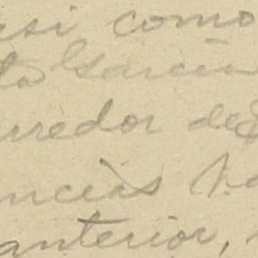 asi como
García
redor de
ncias
anterior,